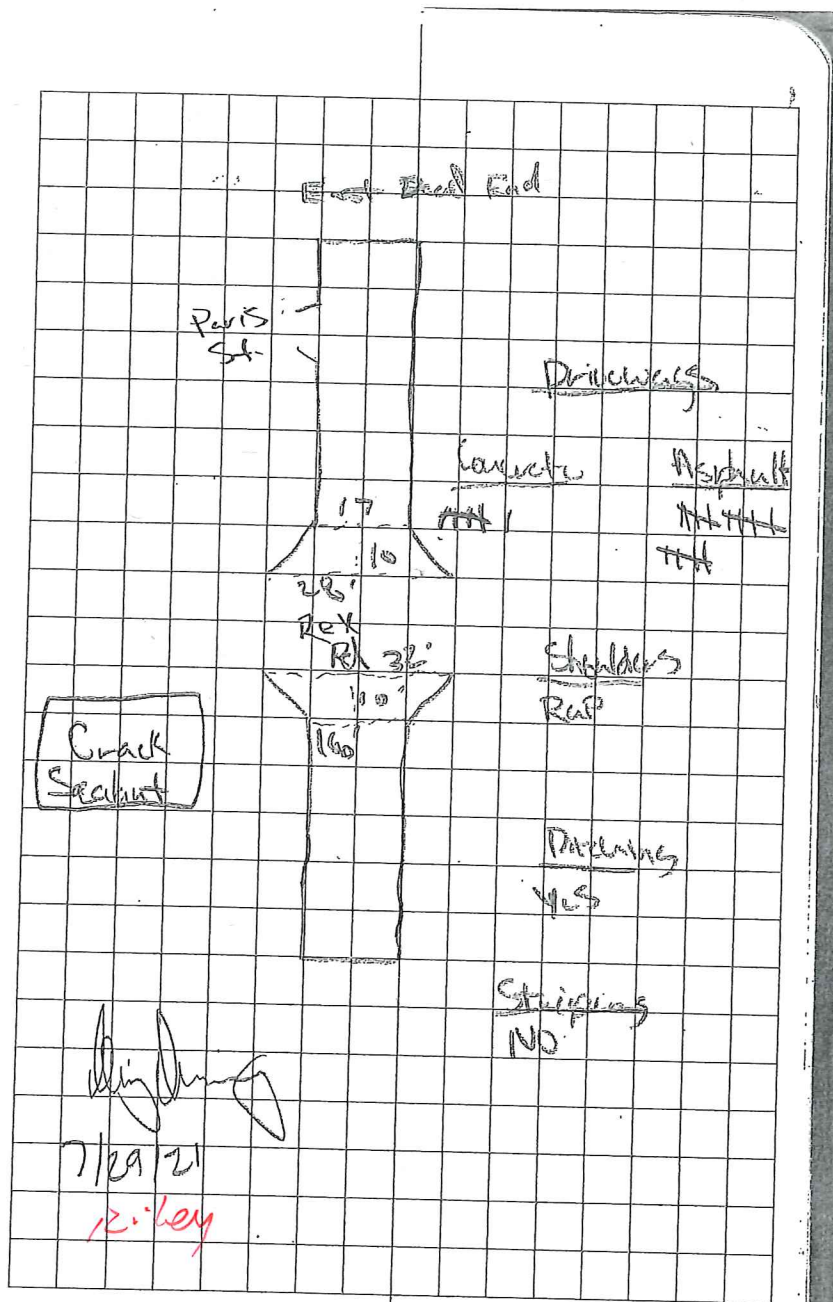 East Dead End
Paris
St.
Driveways
Concrete
Asphalt
17
10
28'
Rex
Rd 32'
10'
16'
Shoulders
RaP
Crack
Sealant
Ditching
Yes
Striping
NO
7/29/21
Riley